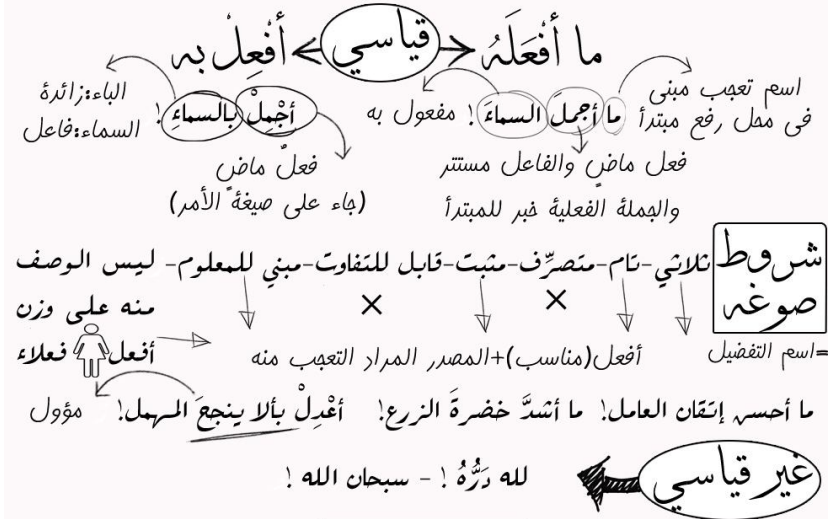 ما أَفْعَلَهُ قياسي أَفْعِلْ به
اسم تعجب مبنى
فى محل رفع مبتدأ
ما أجملَ السماءَ !
مفعول به
فعل ماضٍ والفاعل مستتر
والجملة الفعلية خبر للمبتدأ
أجْمِلْ بالسماءِ !
الباء:زائدة
السماء:فاعل
فعلٌ ماضٍ
(جاء على صيغة الأمر)
شروط صوغه
=اسم التفضيل
ثلاثي-تام-متصرِّف-مثبت-قابل للتفاوت-مبني للمعلوم-ليس الوصف
منه على وزن
أفعل فعلاء
أفعل(مناسب)+المصدر المراد التعجب منه
ما أحسن إتقان العامل! ما أشدَّ خضرةَ الزرع! أعْدِلْ بألا ينجحَ المهمل! مؤول
غير قياسي
لله دَرُّهُ ! - سبحان الله !